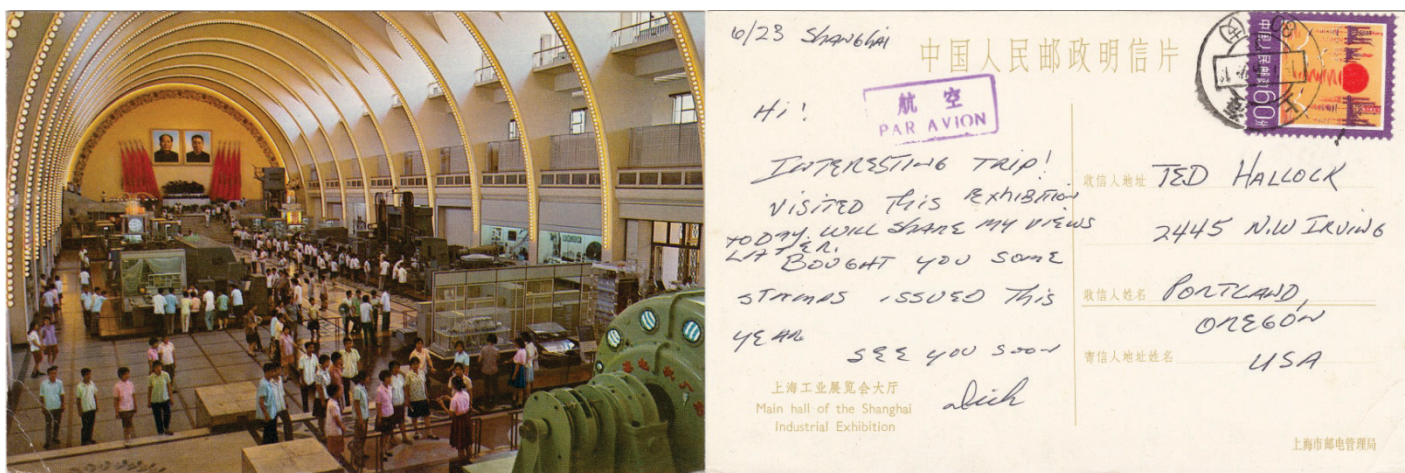 6/23 Shanghai
中国人民邮政明信片
航空
PAR AVION
Hi!
INTERESTING TRIP!
VISITED THIS EXHIBITION
TODAY. WILL SHARE MY VIEWS
LATER.
BOUGHT YOU SOME
STAMPS ISSUED THIS
YEAR
SEE YOU SOON
Dick
上海工业展览会大厅
Main hall of the Shanghai
Industrial Exhibition
60分
收信人地址 TED HALLOCK
2445 N.W IRVING
收信人姓名 PORTLAND,
OREGON
寄信人地址姓名
USA
上海市邮电管理局